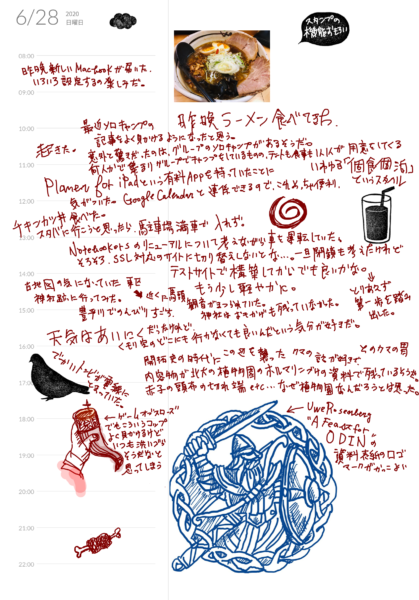 6/28
2020
日曜日
スタンプの
機能おもろい
08:00
昨晩、新しいMacbookが届いた。
いろいろ設定するの楽しみだ。
09:00
昨晩ラーメン食べてるち.
10:00
最近ソロキャンプの
記事をよく見かけるようになったと思う。
起きた。
11:00
意外と驚きだったのは、グループのソロキャンプがあるそうだ。
何人かで集まりグループでキャンプをしているものの、テントも食事も1人1人が用意をしてくる
いわゆる「個食個泊」
というスタイル
Planer for iPadという有料Appを持っていたことに
12:00
気がついた。Google Calenderと連携できるので、こりゃめちゃ便利。
チキンカツ丼食べた。
13:00
スタバに行こうと思ったら、高
Notebookersのリニューアルについて考えながら車を運転していた。
そろそろ、SSL対応のサイトに切り替えしないとな…。一旦閉鎖も考えたけれど
14:00
テストサイトで構築してからでも良いかな。
とりあえず
第一歩を踏み
出した。
もう少し軽やかに。
古地図の気になっていた
神社
15:00
観音がまつられていた。
神社はおもかげも残っていなかった。
豊平川でのんびりすごち
16:00
天気はあいにくだったけれど、
くもり空のどこにも行かなくても良いんだという気分が好きだ。
でかいトビが電線に
とまっていた。
17:00
開拓史の時代にこの
クマの話が好きで
そのクマの胃
内容物が北大の植物園のホルマリンづけの資料で残っているようだ。
etc…なぜ植物園なんだろうとは思った。
18:00
←ゲームオブスローンズ
でもこういうコップ
よく見かけるけど
いつも洗いづら
そうだなと
思ってしまう
19:00
20:00
21:00
22:00
←Uwe Rosenberg
"A Feast for
ODIN"の
資料表紙のロゴ
マークがかっこよい